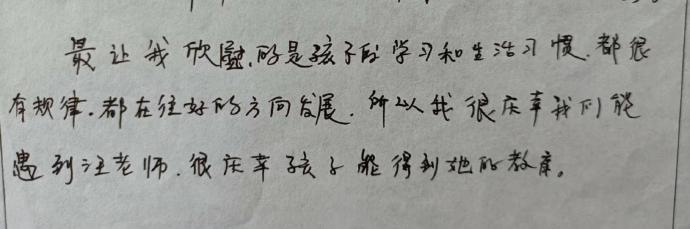 最让我欣慰.的是孩子的学习和生活习惯.都很
有规律.都在往好的方向发展.所以我很庆幸我们能
遇到汪老师.很庆幸孩子能得到她的教育。